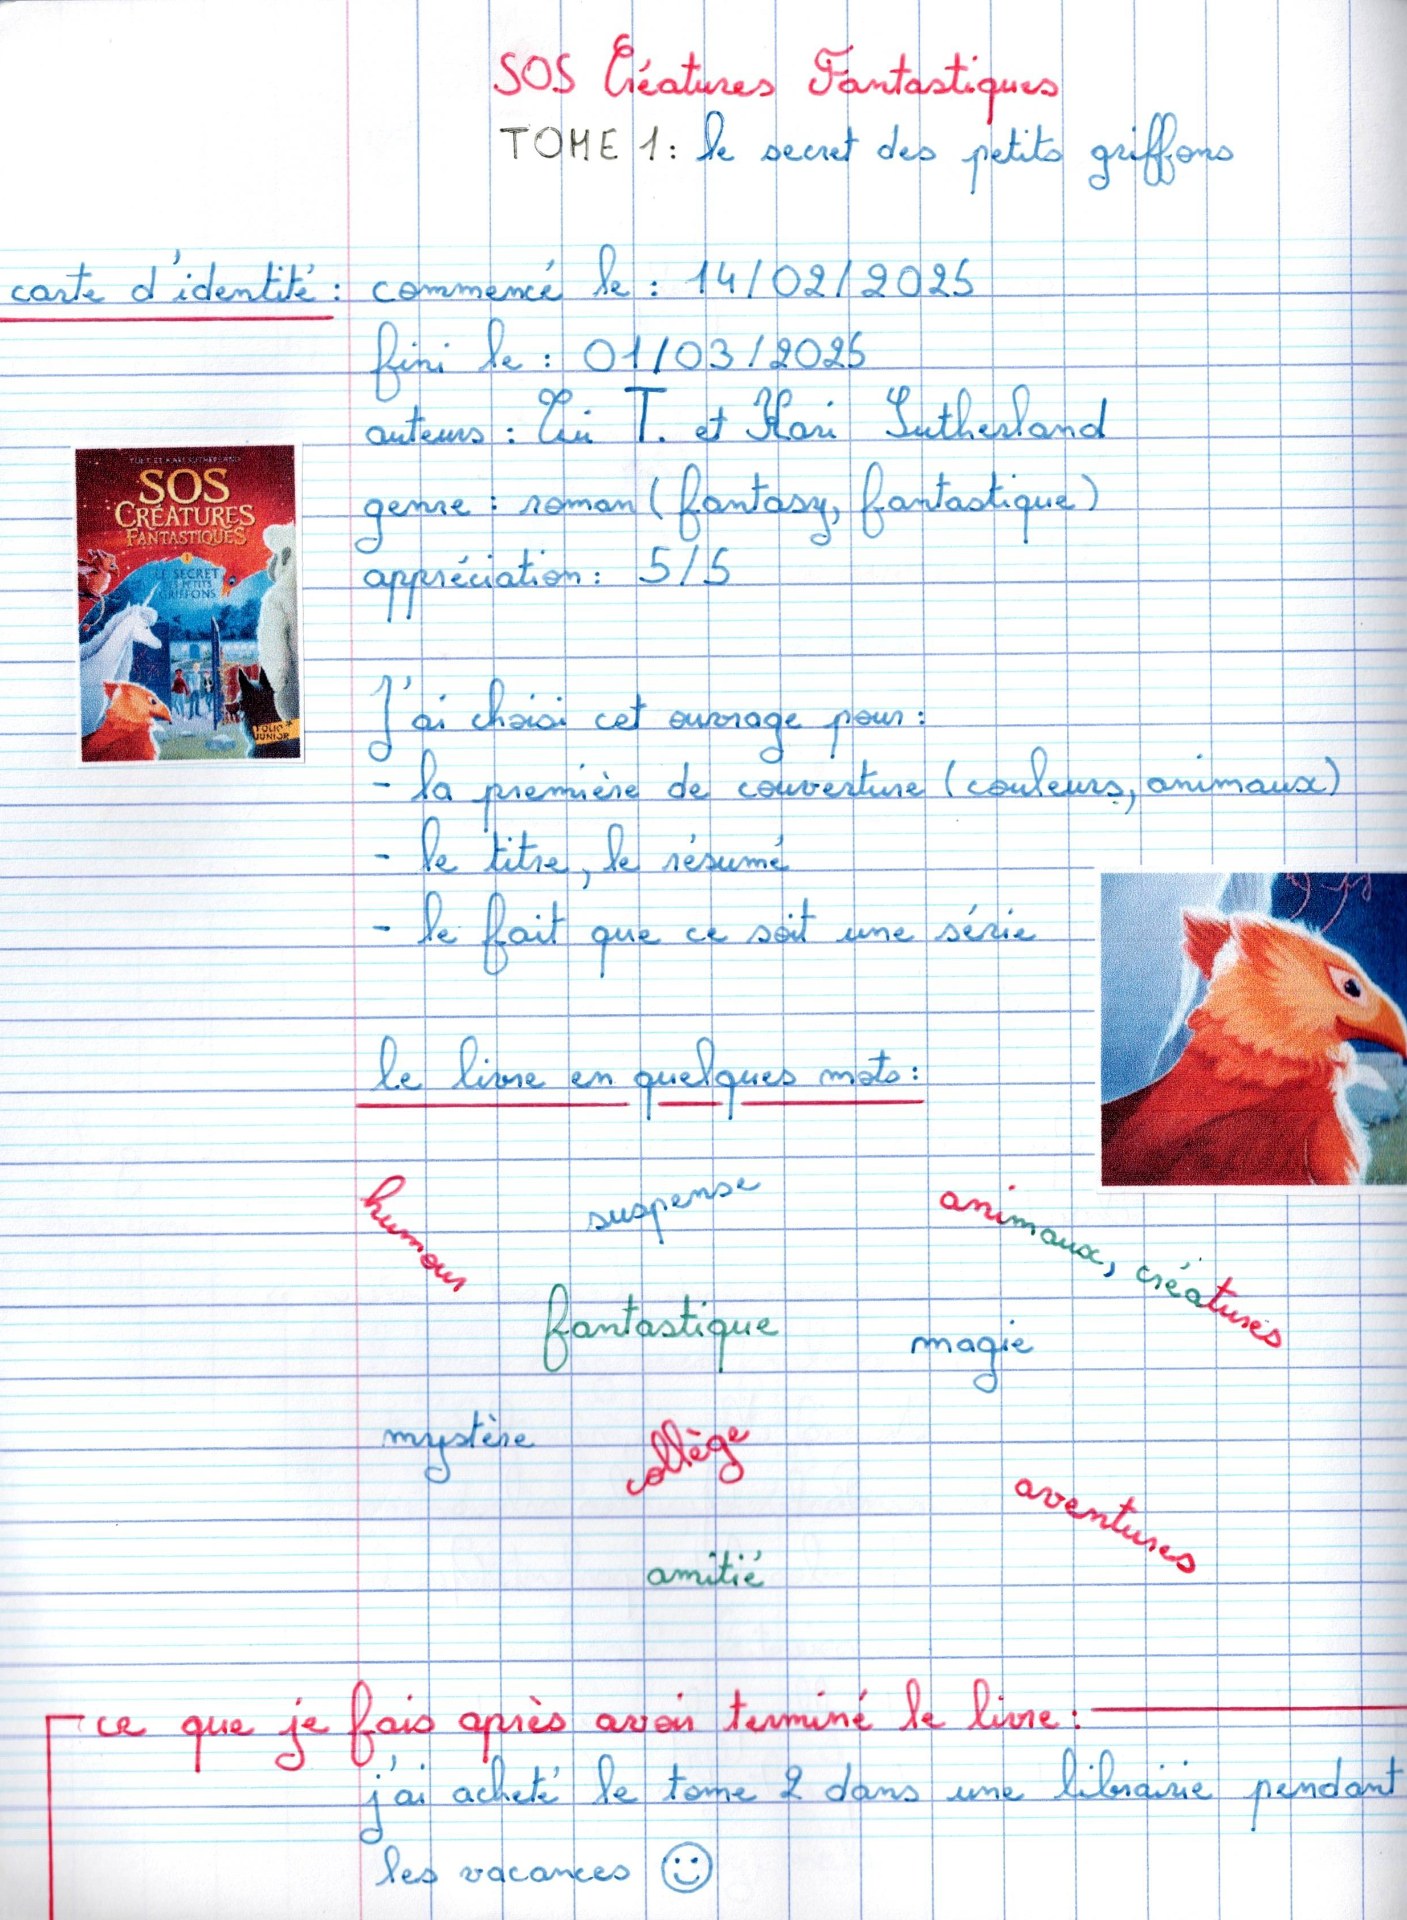 SOS Créatures Fantastiques
TOME 1: le secret des petits griffons
carte d'identité: commencé le : 14/02/2025
fini le : 01/03/2025
auteurs : Tui T. et Kari Sutherland
TUI T. ET KARI SUTHERLAND
SOS
CRÉATURES
FANTASTIQUES
1
LE SECRET
DES PETITS
GRIFFONS
FOLIO
JUNIOR
genre : roman (fantasy, fantastique)
appréciation : 5/5
J'ai choisi cet ouvrage pour :
- la première de couverture (couleurs, animaux)
- le titre, le résumé
- le fait que ce soit une série
le livre en quelques mots :
humour
suspense
animaux, créatures
fantastique
magie
mystère
collège
aventures
amitié
ce que je fais après avoir terminé le livre :
j'ai acheté le tome 2 dans une librairie pendant
les vacances ☺